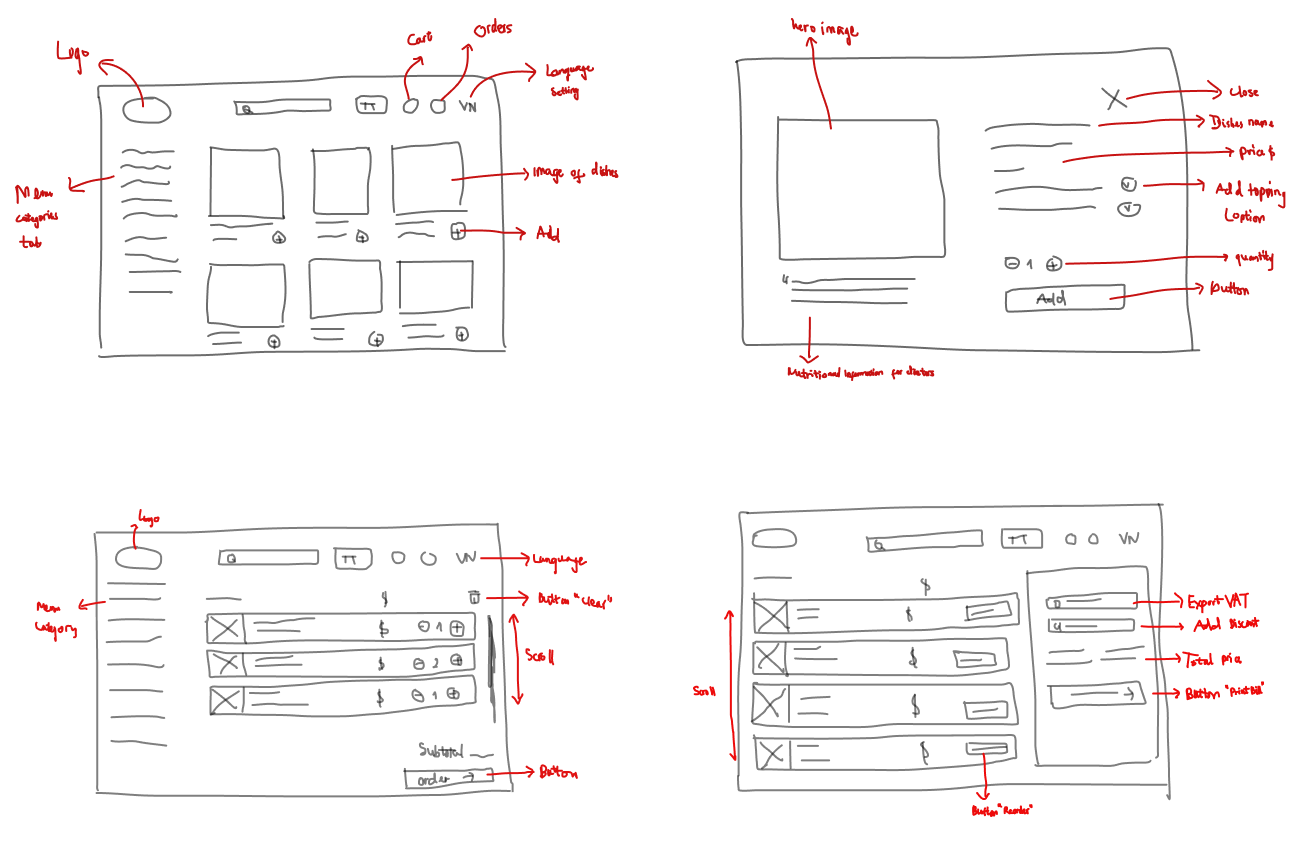 Logo
Cart
Orders
Language
Setting
TT
VN
Menu
categories
tab
Image of dishes
Add
hero image
Close
Dishes name
price $
Add topping
option
quantity
1
Add
button
Nutritional information for dieters
Logo
TT
VN
Language
Menu
Category
$
Button "Clear"
$
1
$
2
$
1
Scroll
Subtotal
order →
Button
TT
VN
$
$
$
$
$
Scroll
Export VAT
Add Discount
Total price
Button "Print Bill"
Button "Reorder"